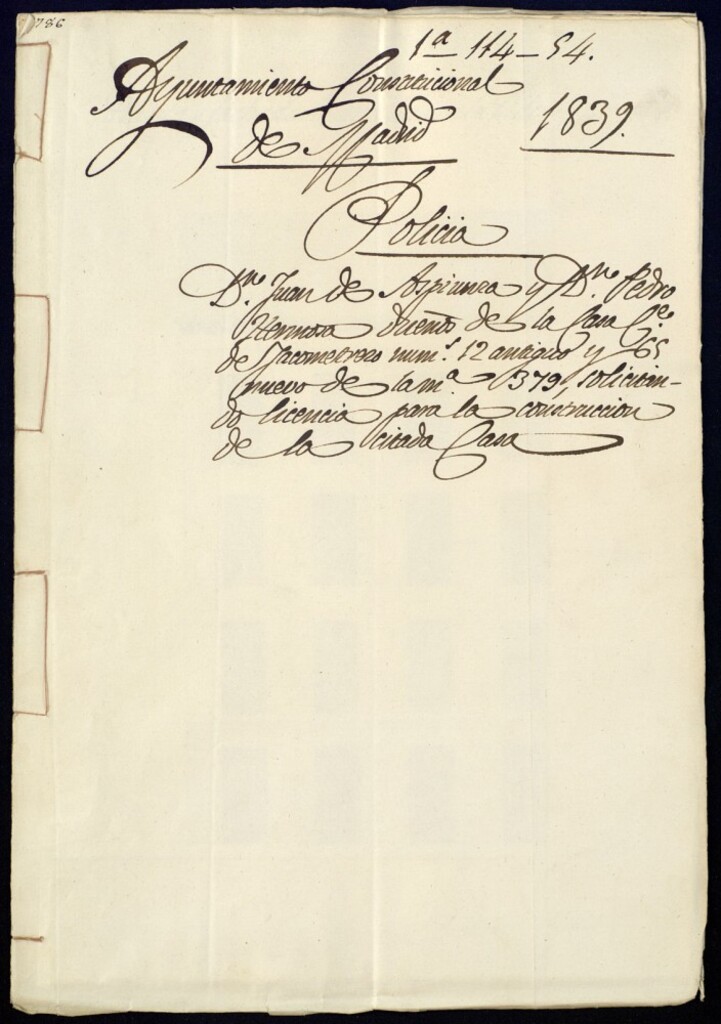 786
1ª 114-54.
Ayuntamiento Constitucional
de Madrid
1839.
Policia
Dn. Juan de Azpiunza y Dn. Pedro
Hermosa dueños de la Casa C.e
de Jacometrezo num.s 12 antiguo y 65
nuevo de la m.a 379, solicitan-
do licencia para la construccion
de la citada Casa